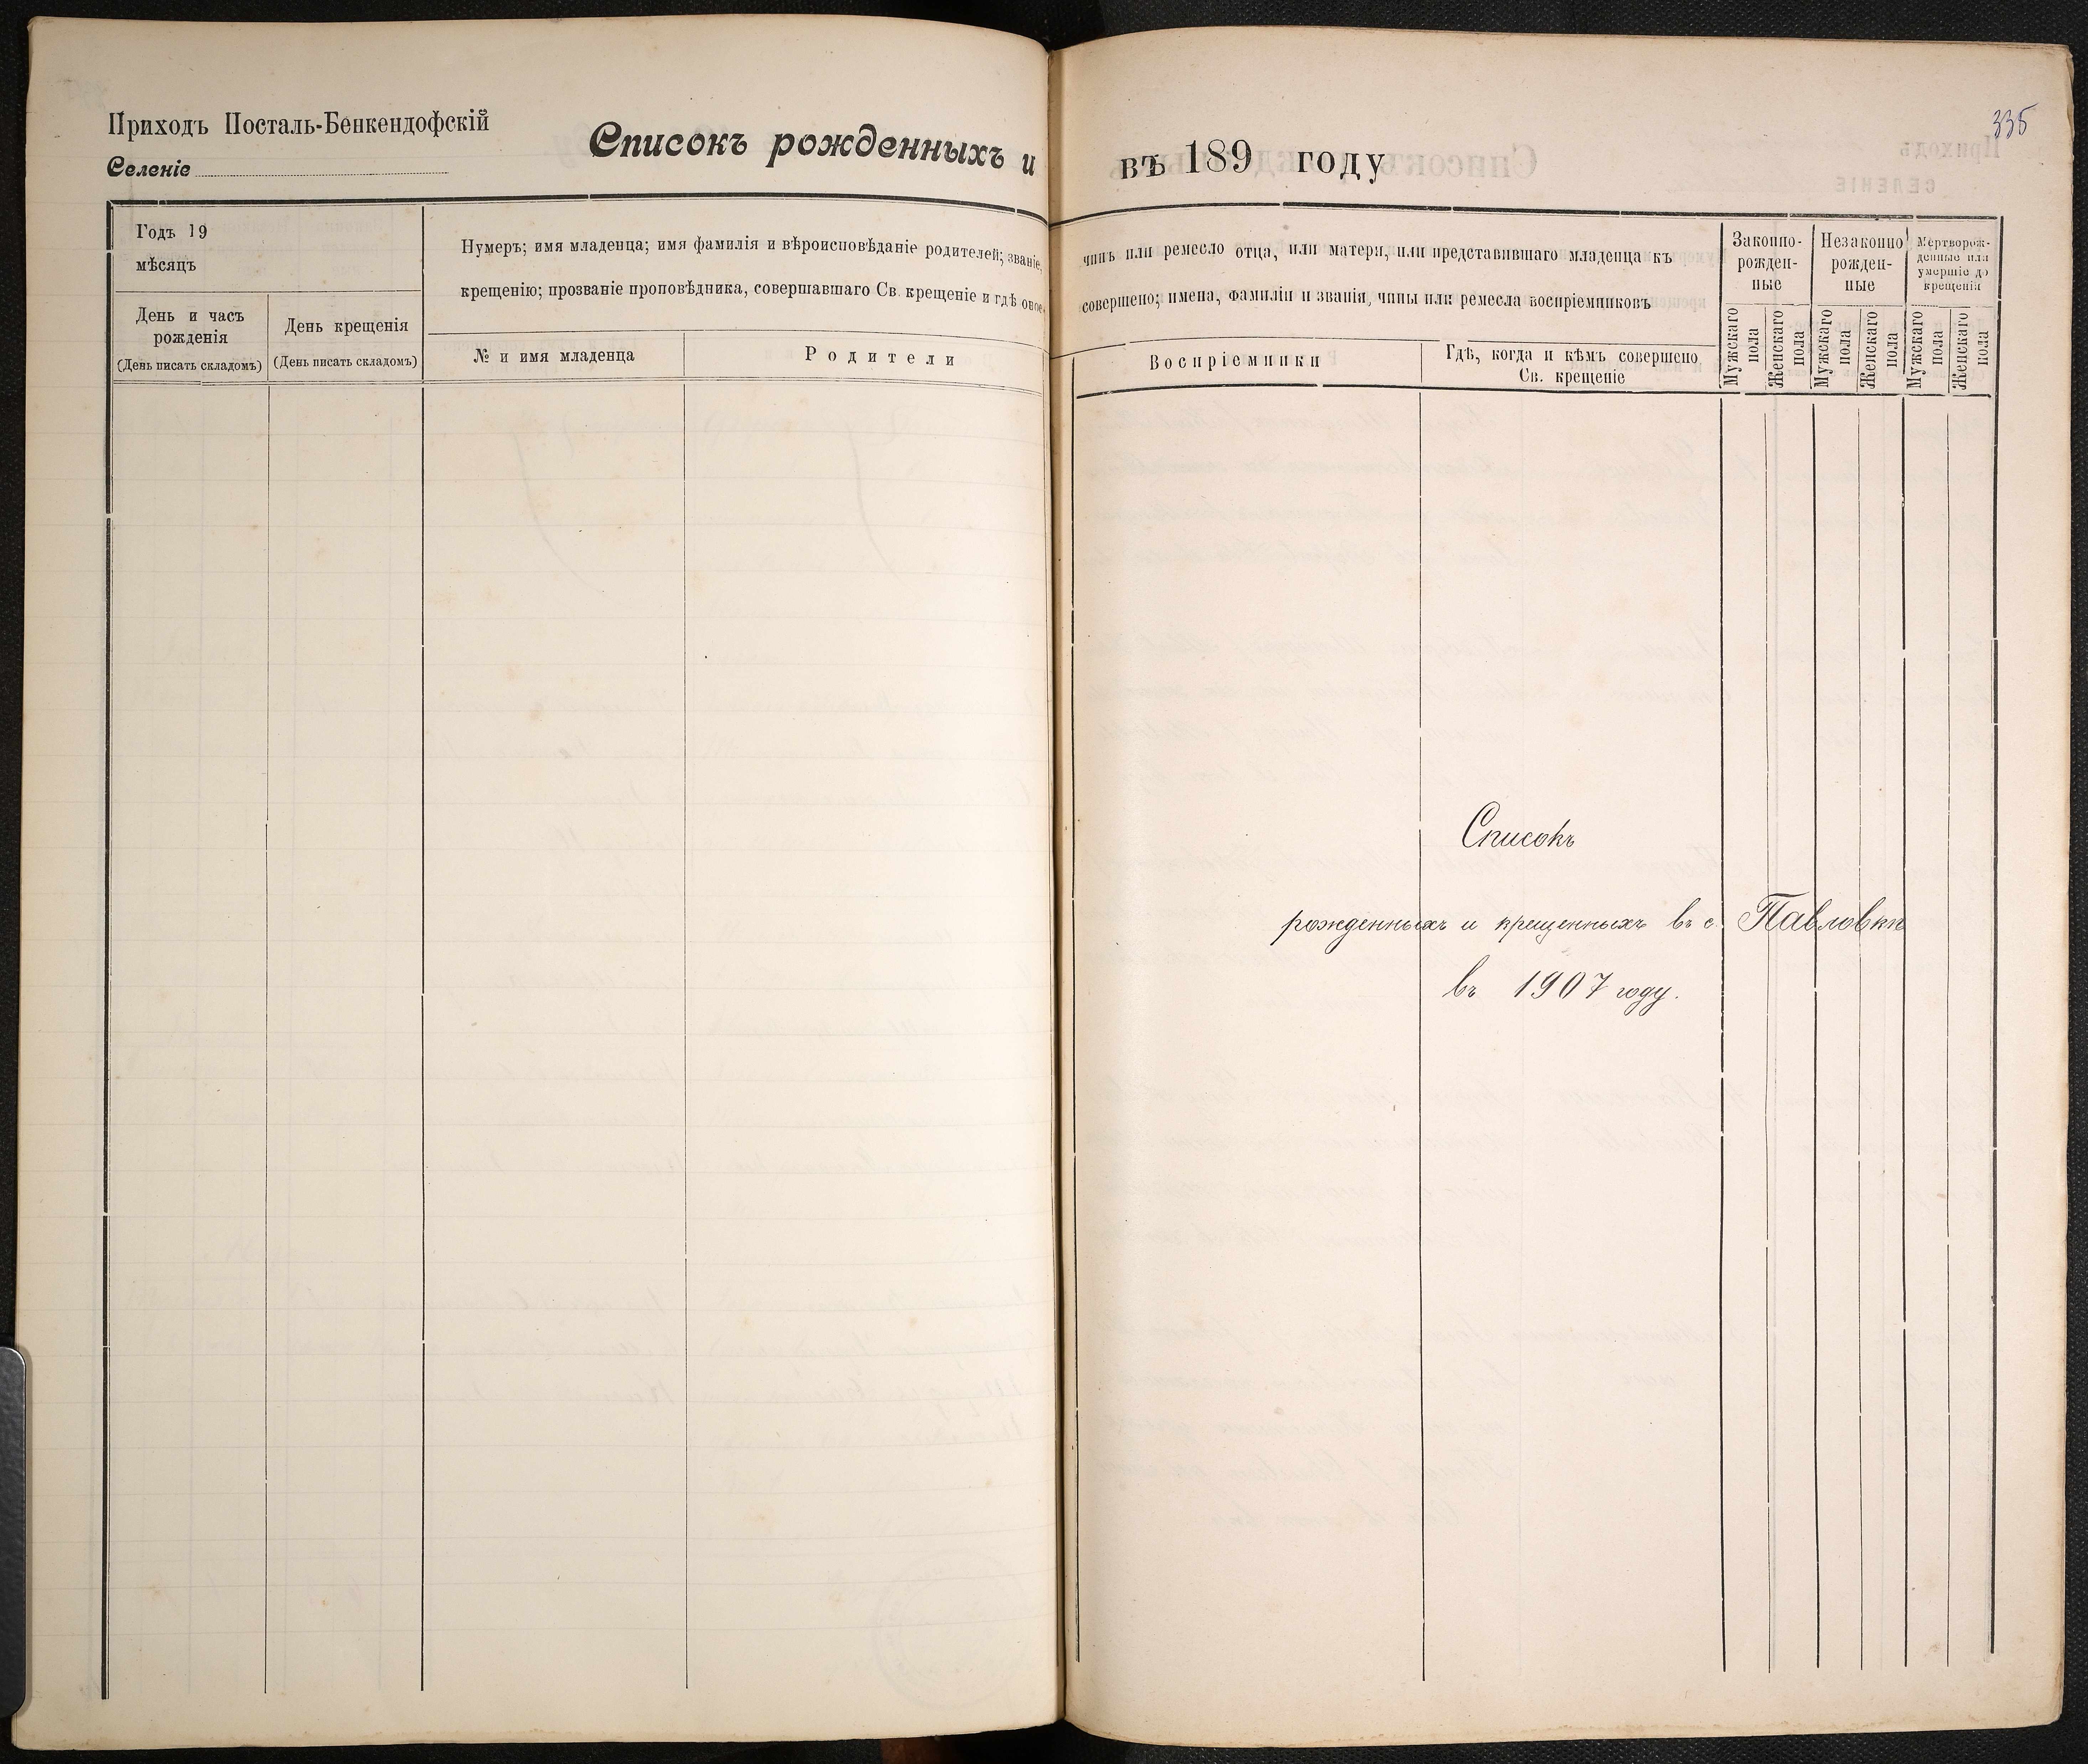 Приходъ Посталь-Бенкендофскій
Селеніе
Списокъ рожденныхъ и
Годъ 19
мѣсяцъ
День и часъ
рожденія
(День писать складомъ)
День крещенія
(День писать складомъ)
Нумеръ; имя младенца; имя фамилія и вѣроисповѣданіе родителей; званіе,
крещенію; прозваніе проповѣдника, совершавшаго Св. крещеніе и гдѣ оное
№ и имя младенца
Родители
335
въ 189 году
чинъ или ремесло отца, или матери, или представившаго младенца къ
совершено; имена, фамиліи и званія, чины или ремесла воспріемниковъ
Воспріемники
Гдѣ, когда и кѣмъ совершено
Св. крещеніе
Законно-
рожден-
ные
Незаконно
рожден-
ные
Мертворож-
денные или
умершіе до
крещенія
Мужскаго
пола
Женскаго
пола
Мужскаго
пола
Женскаго
пола
Мужскаго
пола
Женскаго
пола
Списокъ
рожденныхъ и крещенныхъ въ с. Павловкѣ
въ 1907 году.